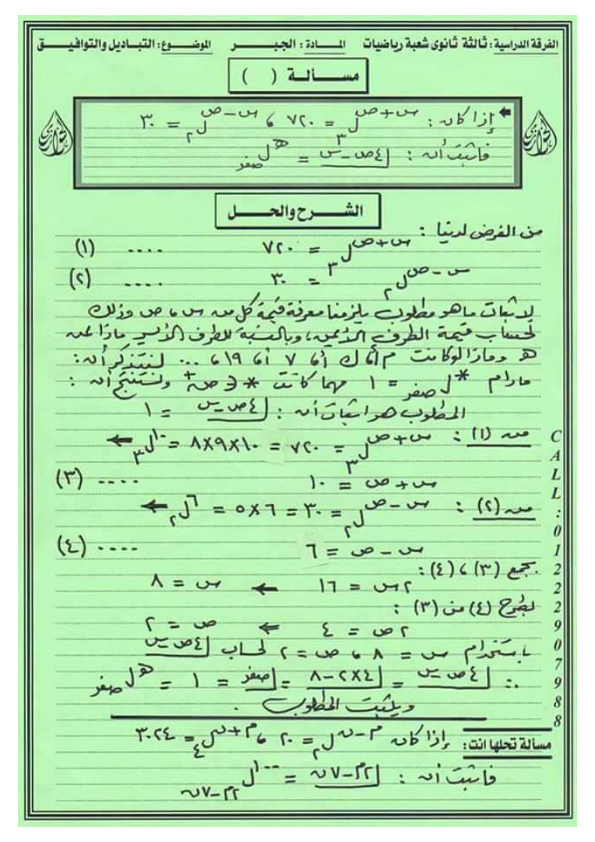 الفرقة الدراسية: ثالثة ثانوى شعبة رياضيات المــادة: الجبــر الموضــوع: التباديل والتوافيــق
مســألــة ( )
إذا كان: س+ص ل ٣ = ٧٢٠ ، س-ص ل ٢ = ٣٠
فاثبت أن: |٤ص-س = هـ ل صفر
الشــرح والحــل
من الفرض لدينا:
س+ص ل ٣ = ٧٢٠ .... (١)
س-ص ل ٢ = ٣٠ .... (٢)
لاثبات ما هو مطلوب يلزمنا معرفة قيمة كل من س ، ص وذلك
لحساب قيمة الطرف الأيمن، وبالنسبة للطرف الأيسر ماذا عن
هـ وماذا لو كانت م أ، ك أ، ٧ أ، ١٩ ، ... لنتذكر أن:
مادام * ل صفر = ١ مهما كانت * ∈ ص+ ولنستنتج أن:
المطلوب هو اثبات أن: |٤ص-س = ١
من (١): س+ص ل ٣ = ٧٢٠ = ١٠×٩×٨ = ١٠ ل ٣ ←
س+ص = ١٠ .... (٣)
من (٢): س-ص ل ٢ = ٣٠ = ٦×٥ = ٦ ل ٢ ←
س-ص = ٦ .... (٤)
بجمع (٣)،(٤):
٢س = ١٦ ← س = ٨
بطرح (٤) من (٣):
٢ص = ٤ ← ص = ٢
باستخدام س = ٨ ، ص = ٢ لحساب |٤ص-س
∴ |٤ص-س = |٤×٢-٨ = |صفر = ١ = هـ ل صفر
ويثبت المطلوب.
مسألة تحلها انت: إذا كان م-ن ل ٢ = ٢٠ ، م+ن ل ٤ = ٣٠٢٤
فاثبت أن: |٢م-٧ن = ١٠٠ ل ٢م-٧ن
CALL: 0122907988
الخوارزمي